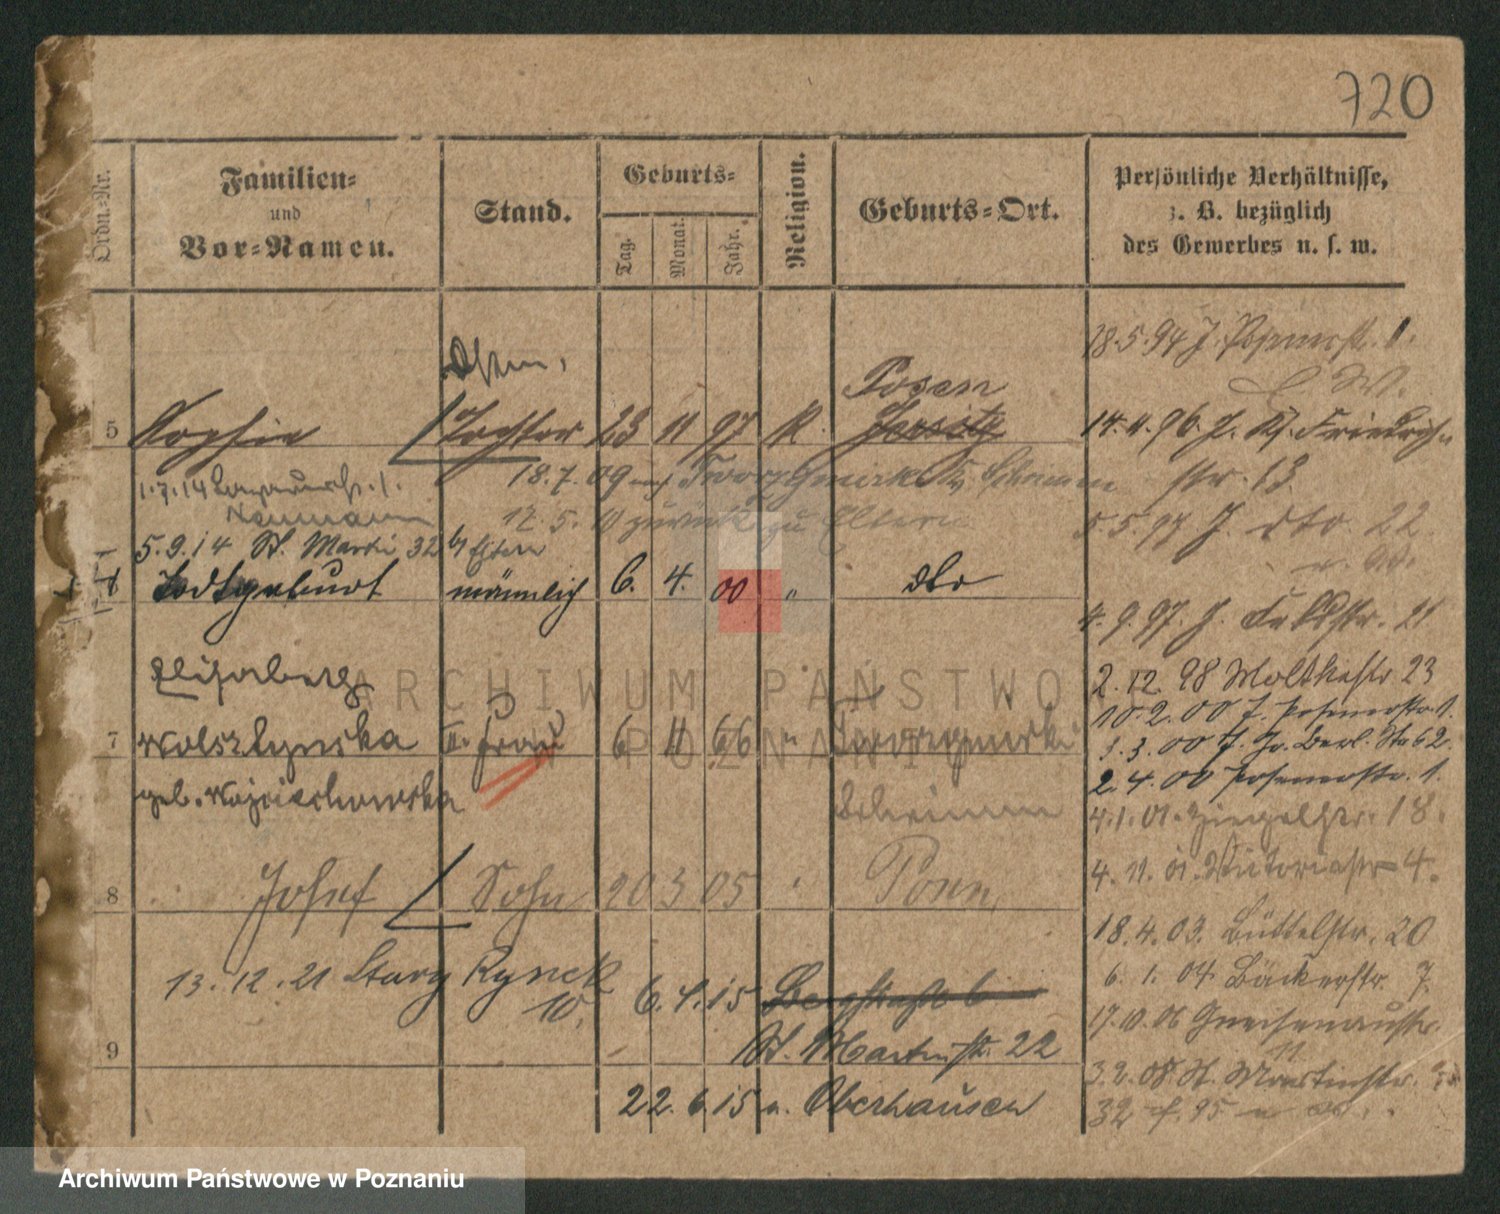 720
Ordn.-Nr.
Familien-
und
Vor-Namen.
Stand.
Geburts-
Tag.
Monat.
Jahr.
Religion.
Geburts-Ort.
Persönliche Verhältnisse,
z. B. bezüglich
des Gewerbes u. s. w.
18.5.94 J. Posenerst. 1.
Posen
5 Sophie Tochter 23 11 97 K. Jersitz
14.11.96. J. Friedrich
str. 13
1.7.14
Neumann
18.7.09
12.5.10 zurück zu Eltern
5.5.97 J. dto 22
5.9.14 St. Martin 32 b/ Eltern
Todtgeburt männlich 6. 4. 00 " dto
4.9.97. J. Feldstr. 21
Elisabeth
2.12.98 Moltkestr. 23
10.2.00 J. Posenerstr. 1.
7 Wolsztynska II. Frau 6 11 66 "
3.3.00 J. Gr. Berl. Str 62
geb. Wojciechowska
Schrimm
2.4.00 Posenerstr. 1.
4.1.01. Ziegelstr. 18.
8 Josef Sohn 20 3 05 " Posen
4.11.01. Victoriastr 4.
18.4.03. Büttelstr. 20
13.12.21 Stary Rynek
10.
6.4.15 Bergstraße 6
6.1.04 Bäckerstr. 7.
17.10.06 Gneisenaustr.
11
9 St. Martinstr. 22
3.2.08 St. Martinstr.
32
22.6.15 n. Oberhausen
ARCHIWUM PAŃSTWO
W POZNANIU
Archiwum Państwowe w Poznaniu